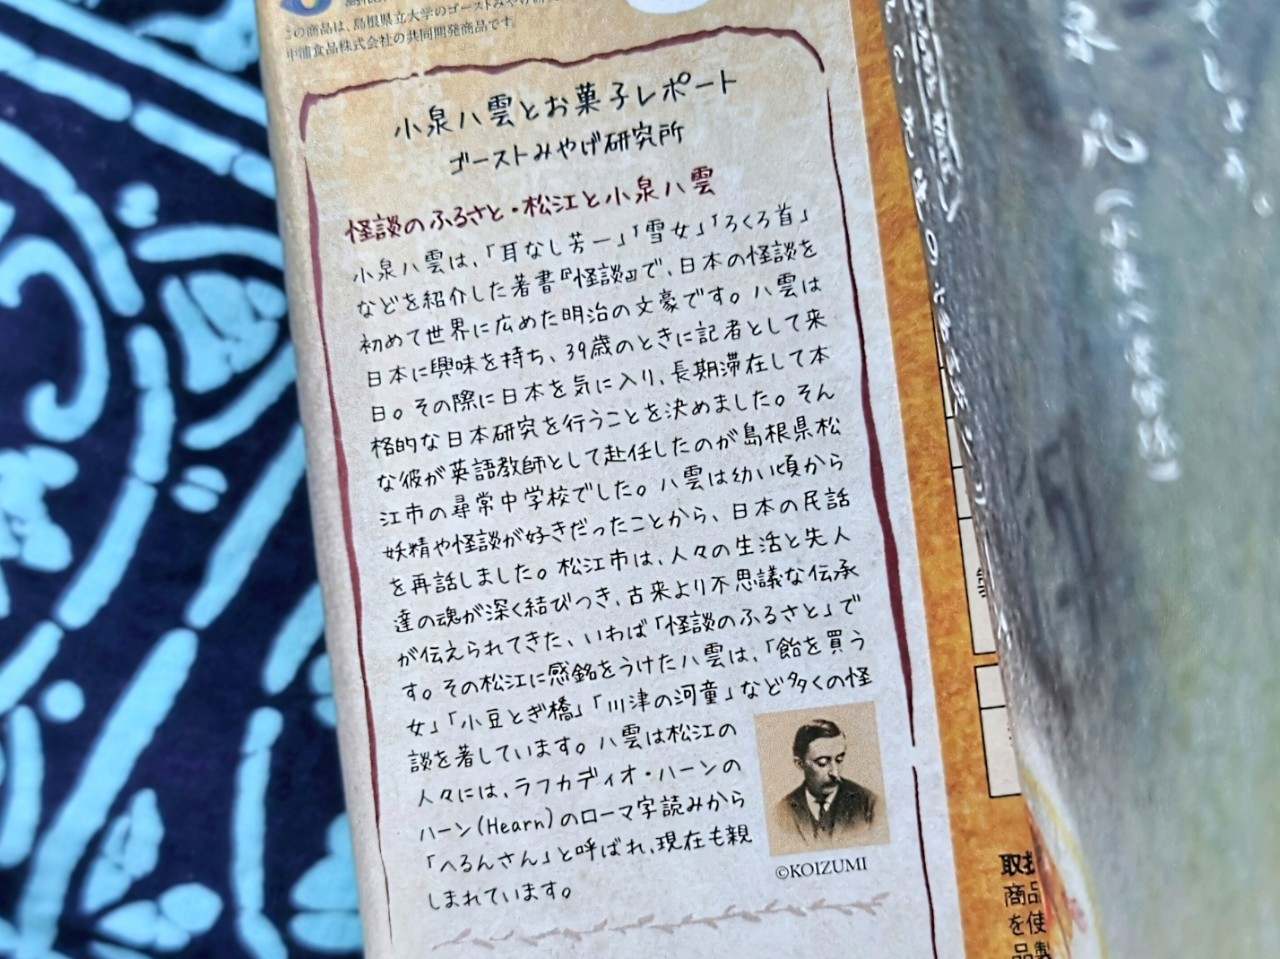 この商品は、島根県立大学のゴーストみやげ研
中浦食品株式会社の共同開発商品です。
小泉八雲とお菓子レポート
ゴーストみやげ研究所
怪談のふるさと・松江と小泉八雲
小泉八雲は、「耳なし芳一」「雪女」「ろくろ首」
などを紹介した著書『怪談』で、日本の怪談を
初めて世界に広めた明治の文豪です。八雲は
日本に興味を持ち、39歳のときに記者として来
日。その際に日本を気に入り、長期滞在して本
格的な日本研究を行うことを決めました。そん
な彼が英語教師として赴任したのが島根県松
江市の尋常中学校でした。八雲は幼い頃から
妖精や怪談が好きだったことから、日本の民話
を再話しました。松江市は、人々の生活と先人
達の魂が深く結びつき、古来より不思議な伝承
が伝えられてきた、いわば「怪談のふるさと」で
す。その松江に感銘をうけた八雲は、「飴を買う
女」「小豆とぎ橋」「川津の河童」など多くの怪
談を著しています。八雲は松江の
人々には、ラフカディオ・ハーンの
ハーン(Hearn)のローマ字読みから
「へるんさん」と呼ばれ、現在も親
しまれています。
©KOIZUMI
でしょう。
泉 凡
取扱
商品
を使
品製